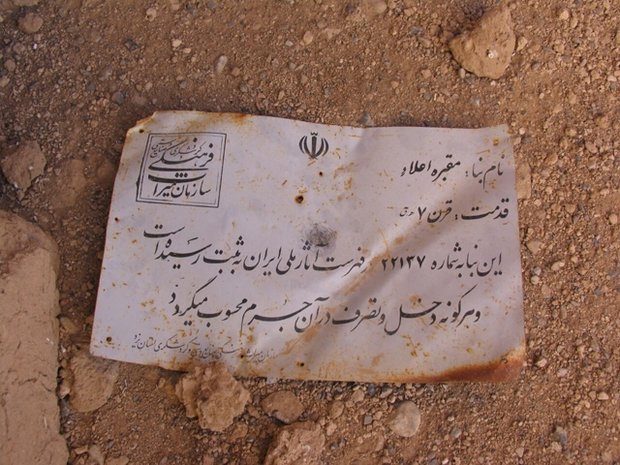 سازمان میراث فرهنگی
نام بنا: مقبره اعلاء
قدمت: قرن ۷ ه‍.ق
این بنا به شماره ۲۲۱۳۷ در فهرست آثار ملی ایران به ثبت رسیده است
و هرگونه دخل و تصرف در آن جرم محسوب میگردد
گردشگری استان یزد